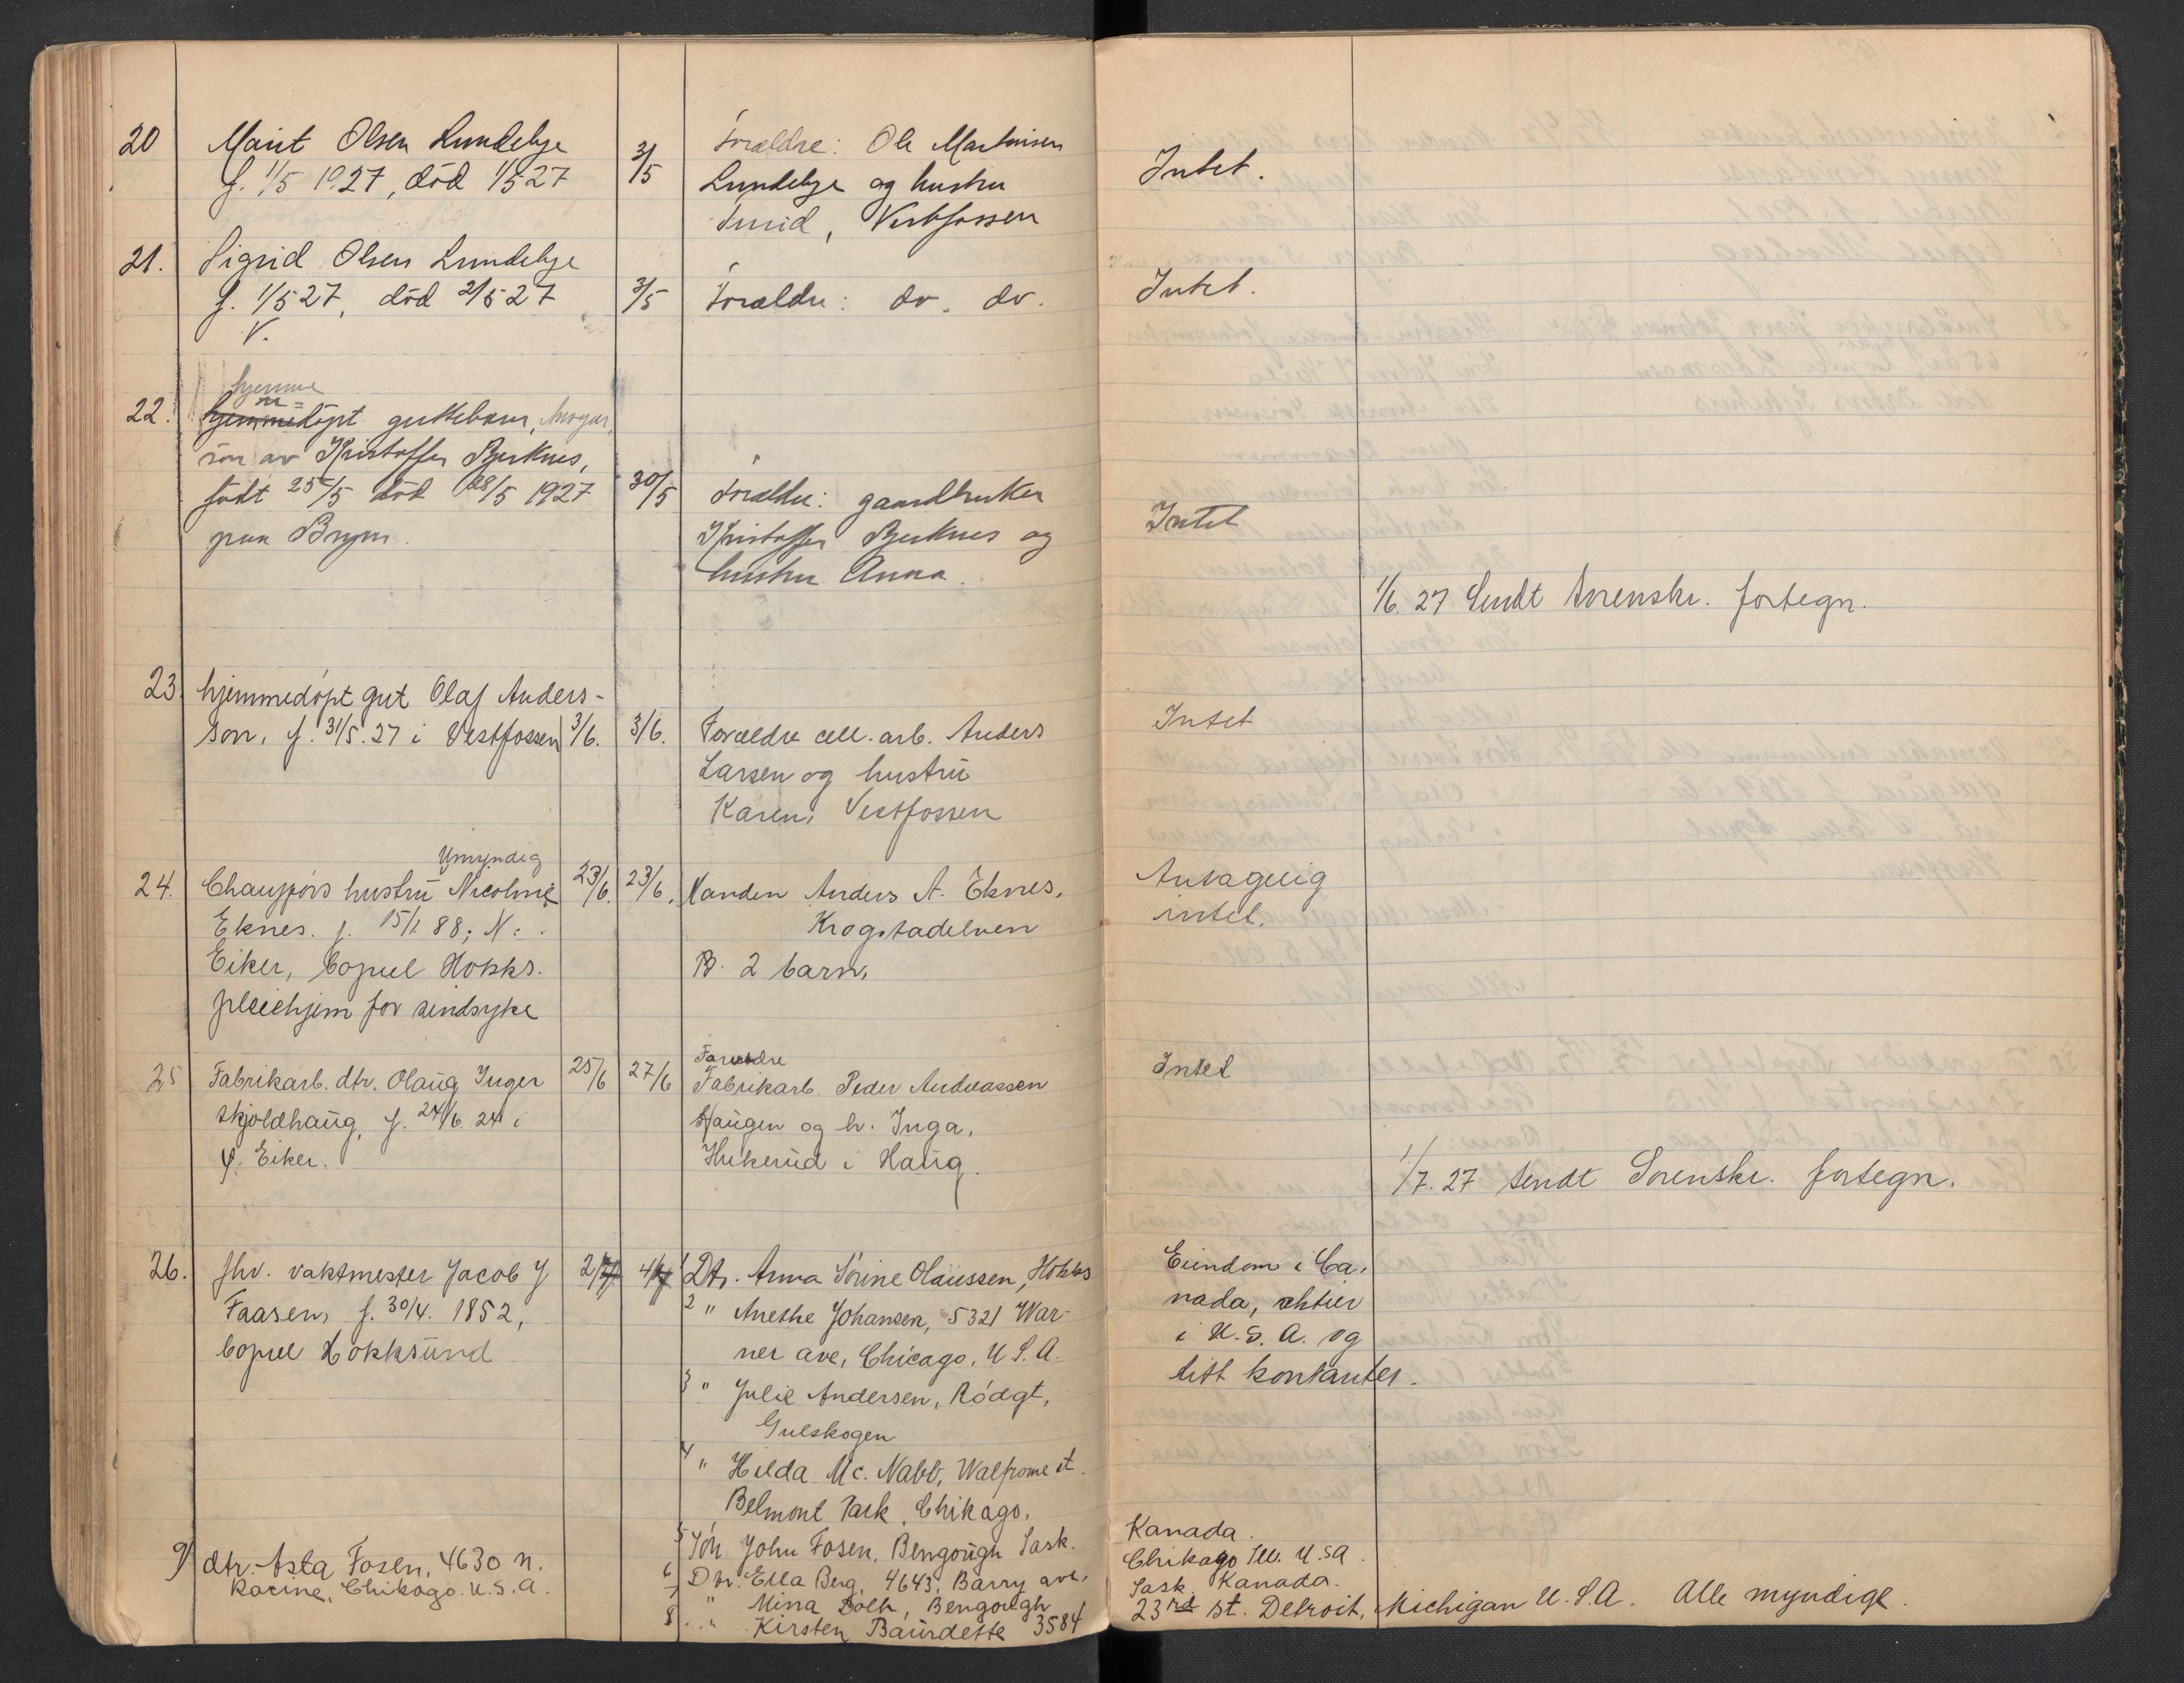 20 Marit Olsen Lundebye 3/5 Forældre: Ole Martinsen Intet.
f. 1/5 1927, död 1/5 27 Lundebye og hustru
Turid, Vestfossen
21. Sigrid Olsen Lundebye
f. 1/5 27, död 2/5 27 3/5 Forældre: do. do. Intet.
V.
hjemme
22. hjemmedöpt guttebarn,
sön av Kristoffer Bjerknes,
født 25/5 död 28/5 1927 30/5 Forældre: gaardbruker Intet
paa Bryn. Kristoffer Bjerknes og
hustru Anna.
1/6. 27 Sendt Sorenskr. fortegn.
23. hjemmedöpt gut Olaf Anders-
son, f. 31/5. 27 i Vestfossen 3/6. 3/6. Forældre cell. arb. Anders Intet
Larsen og hustru
Karen, Vestfossen
Umyndig
24. Chaufförs hustru Nicoline 23/6. 23/6. Manden Anders A. Eknes, Antagelig
Eknes. f. 15/1 88; N. Krogstadelven intet.
Eiker, bopæl Hokks. B. 2 barn,
pleiehjem for sindsyke
Forældre
25 Fabrikarb. dtr. Olaug Inger 25/6 27/6 Fabrikarb. Peder Andreassen Intet
Skjoldhaug, f. 24/6. 24 i Haugen og h. Inga,
Ø. Eiker. Hukerud i Haug.
1/7. 27 sendt Sorenskr. fortegn.
26. fhv. vaktmester Jacob J 2/7 4/7 1 Dtr. Anna Sörine Olaussen, Hokks Eiendom i Ca-
Faasen, f. 30/4. 1852, 2 " Anethe Johansen, 5321 War- nada, aktier
bopæl Hokksund ner ave, Chicago, U.S.A. i U.S.A. og
3 " Julie Andersen, Rödgt, litt kontanter.
Gulskogen
4 " Hilda Mc. Nabb, Walfrome st.
Belmont Park, Chikago.
5 Sön. John Fosen, Bengough Sask. Kanada.
9) dtr. Asta Fosen, 4630 N. 6 Dtr. Ella Berg, 4643, Barry ave, Chikago Ill. U.S.A.
Racine, Chikago. U.S.A. 7 " Mina Dolk, Bengough Sask. Kanada.
8. " Kirsten Baurdette 3584 23rd st. Detroit, Michigan U.S.A. Alle myndige.